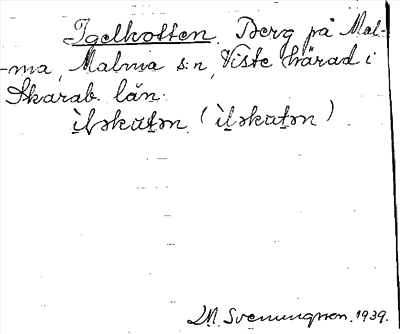 Igelkotten. Berg på Mal-
-ma, Malma s:n, Viste härad i
Skarab. län.
ìl̬əkɷt̬ən (ìl̬əkɷt̬ən)
M. Svenungsson. 1939.